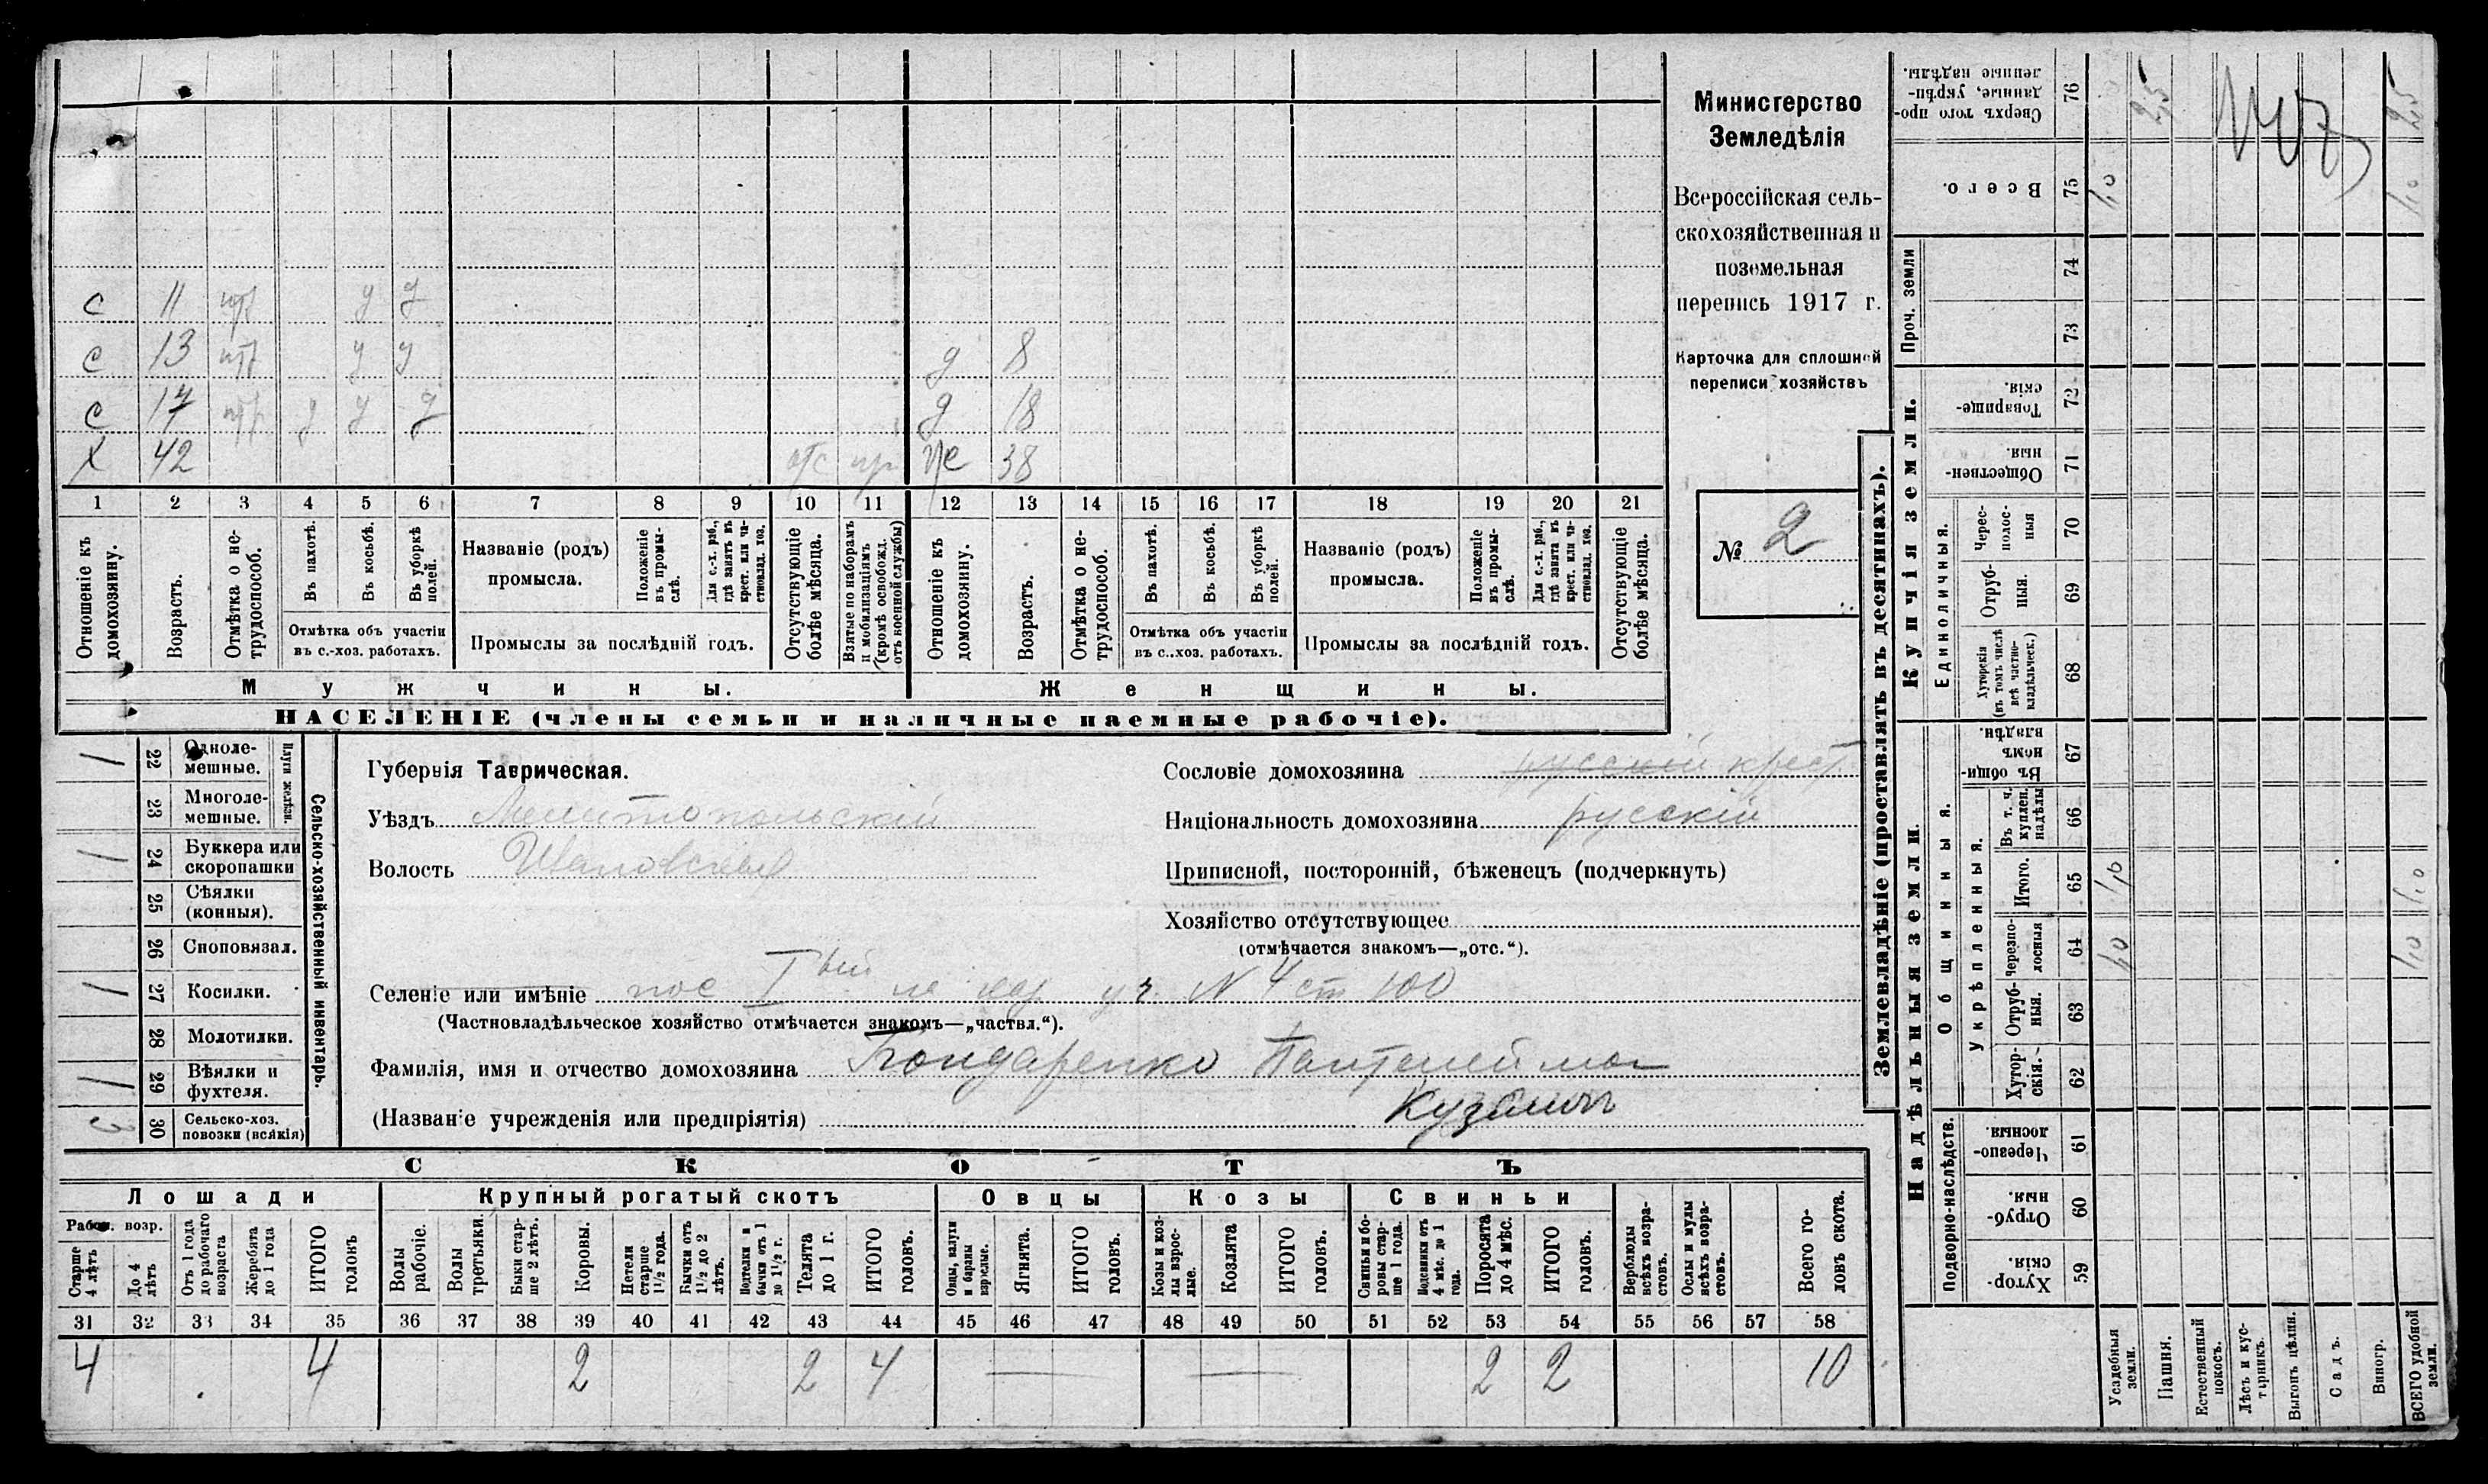 Министерство
Земледѣлія
Всероссійская сель-
скохозяйственная и
поземельная
перепись 1917 г.
Карточка для сплошной
переписи хозяйствъ
№ 2
с 11 у у
с 13 у у д 8
с 17 у у у д 18
х 42 отс же 38
1 2 3 4 5 6 7 8 9 10 11 12 13 14 15 16 17 18 19 20 21
Отношеніе къ домохозяину.
Возрастъ.
Отмѣтка о не-трудоспособ.
Въ пахотѣ.
Въ косьбѣ.
Въ уборкѣ полей.
Отмѣтка объ участіи въ с.-хоз. работахъ.
Названіе (родъ) промысла.
Положеніе въ промы-слѣ.
Для с.-х. раб., гдѣ занятъ въ крест. или ча-стновлад. хоз.
Промыслы за послѣдній годъ.
Отсутствующіе болѣе мѣсяца.
Взятые по наборамъ и мобилизаціямъ (кромѣ освобожд. отъ военной службы)
Отношеніе къ домохозяину.
Возрастъ.
Отмѣтка о не-трудоспособ.
Въ пахотѣ.
Въ косьбѣ.
Въ уборкѣ полей.
Отмѣтка объ участіи въ с..хоз. работахъ.
Названіе (родъ) промысла.
Положеніе въ промы-слѣ.
Для с.-х. раб., гдѣ занята въ крест. или ча-стновлад. хоз.
Промыслы за послѣдній годъ.
Отсутствующіе болѣе мѣсяца.
Мужчины. Женщины.
НАСЕЛЕНІЕ (члены семьи и наличные наемные рабочіе).
Сельско-хозяйственный инвентарь.
Плуги желѣзн.
1 22 Одноле-мешные.
23 Многоле-мешные.
1 24 Буккера или скоропашки
25 Сѣялки (конныя).
26 Сноповязал.
1 27 Косилки.
28 Молотилки.
1 29 Вѣялки и фухтеля.
30 Сельско-хоз. повозки (всякія)
Губернія Таврическая.
Уѣздъ Мелитопольскій
Волость Ивановская
Сословіе домохозяина русскій крест
Національность домохозяина русскій
Приписной, посторонній, бѣженецъ (подчеркнуть)
Хозяйство отсутствующее
(отмѣчается знакомъ—„отс.“).
Селеніе или имѣніе пос I уч. N 4 ст 100
(Частновладѣльческое хозяйство отмѣчается знакомъ—„частвл.“).
Фамилія, имя и отчество домохозяина Бондаренко Пантелеймон
(Названіе учрежденія или предпріятія) Кузьмич
СКОТЪ
Лошади Крупный рогатый скотъ Овцы Козы Свиньи
Рабоч. возр.
Старше 4 лѣтъ
До 4 лѣтъ
Отъ 1 года до рабочаго возраста
Жеребята до 1 года
ИТОГО головъ
Волы рабочіе.
Волы третьяки.
Быки стар-ше 2 лѣтъ.
Коровы.
Нетели старше 1½ года.
Бычки отъ 1½ до 2 лѣтъ.
Подтелки и бычки отъ 1 до 1½ г.
Телята до 1 г.
ИТОГО головъ.
Овцы, валухи и бараны взрослые.
Ягнята.
ИТОГО головъ.
Козы и коз-лы взрос-лые.
Козлята
ИТОГО головъ.
Свиньи и бо-ровы стар-ше 1 года.
Подсвинки отъ 4 мѣс. до 1 года.
Поросята до 4 мѣс.
ИТОГО головъ.
Верблюды всѣхъ возра-стовъ.
Ослы и мулы всѣхъ возра-стовъ.
Всего го-ловъ скота.
31 32 33 34 35 36 37 38 39 40 41 42 43 44 45 46 47 48 49 50 51 52 53 54 55 56 57 58
4 4 2 2 4 — — 2 2 10
Землевладѣніе (проставлять въ десятинахъ).
Купчія земли.
Надѣльныя земли.
Проч. земли
Единоличныя.
Общинныя.
Укрѣпленныя.
Подворно-наслѣдств.
Сверхъ того про-данные, укрѣп-ленные надѣлы. 76
Всего. 75
74
73
Товарище-скія. 72
Обществен-ныя. 71
Черес-полос-ныя 70
Отруб-ныя. 69
Хуторскія (въ томъ числѣ всѣ частно-владѣльческ.) 68
Въ общи-номъ владѣн. 67
Въ т. ч. куплен. надѣлы 66
Итого. 65
Черезпо-лосныя 64
Отруб-ныя. 63
Хутор-скія. 62
Черезпо-лосныя. 61
Отруб-ныя. 60
Хутор-скія. 59
Усадебныя земли.
Пашня.
Естественный покосъ.
Лѣсъ и кус-тарникъ.
Выгонъ цѣлин.
Садъ.
Виногр.
ВСЕГО удобной земли.
25
25